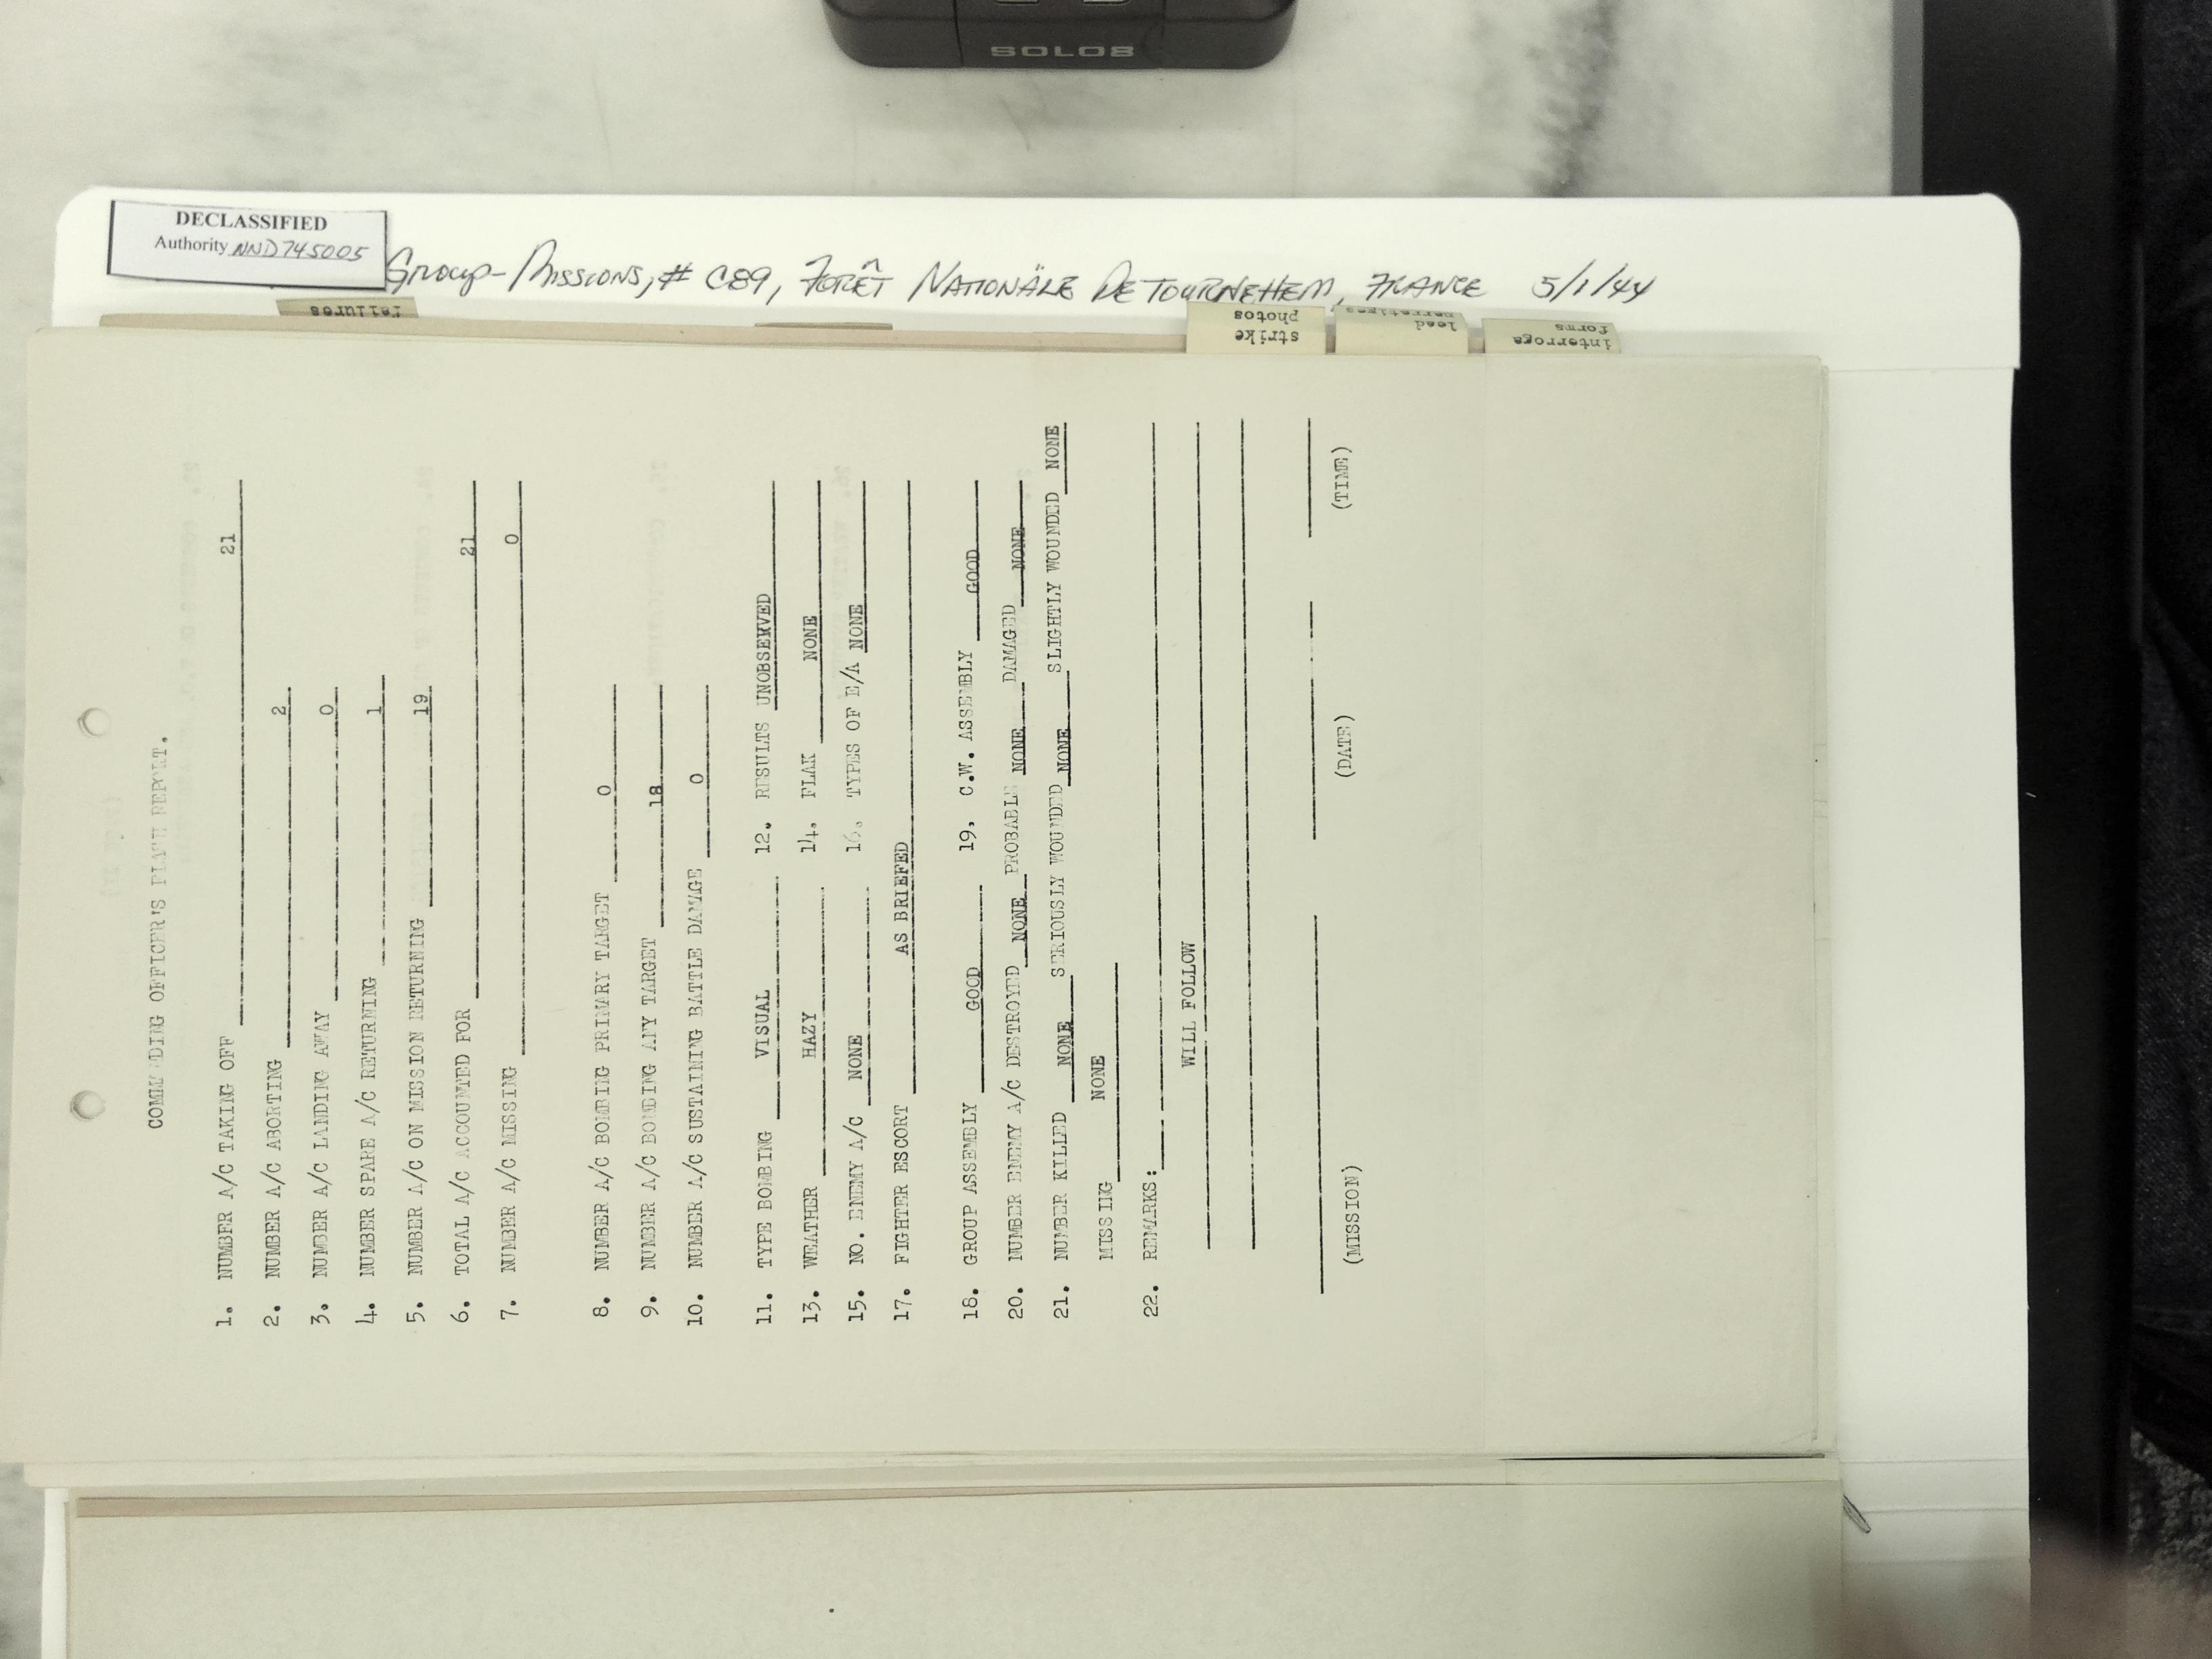 SOLO8
DECLASSIFIED
Authority NND745005
Group-Missions, # C89, Forêt Nationäle De Tournehem, France 5/1/44
failures
strike
photos
lead
narratives
interroga
forms
COMMANDING OFFICER'S FLASH REPORT.
1. NUMBER A/C TAKING OFF 21
2. NUMBER A/C ABORTING 2
3. NUMBER A/C LANDING AWAY 0
4. NUMBER SPARE A/C RETURNING 1
5. NUMBER A/C ON MISSION RETURNING 19
6. TOTAL A/C ACCOUNTED FOR 21
7. NUMBER A/C MISSING 0
8. NUMBER A/C BOMBING PRIMARY TARGET 0
9. NUMBER A/C BOMBING ANY TARGET 18
10. NUMBER A/C SUSTAINING BATTLE DAMAGE 0
11. TYPE BOMBING VISUAL 12. RESULTS UNOBSERVED
13. WEATHER HAZY 14. FLAK NONE
15. NO. ENEMY A/C NONE 16. TYPES OF E/A NONE
17. FIGHTER ESCORT AS BRIEFED
18. GROUP ASSEMBLY GOOD 19. C.W. ASSEMBLY GOOD
20. NUMBER ENEMY A/C DESTROYED NONE PROBABLE NONE DAMAGED NONE
21. NUMBER KILLED NONE SERIOUSLY WOUNDED NONE SLIGHTLY WOUNDED NONE
MISSING NONE
22. REMARKS:
WILL FOLLOW
(MISSION) (DATE) (TIME)